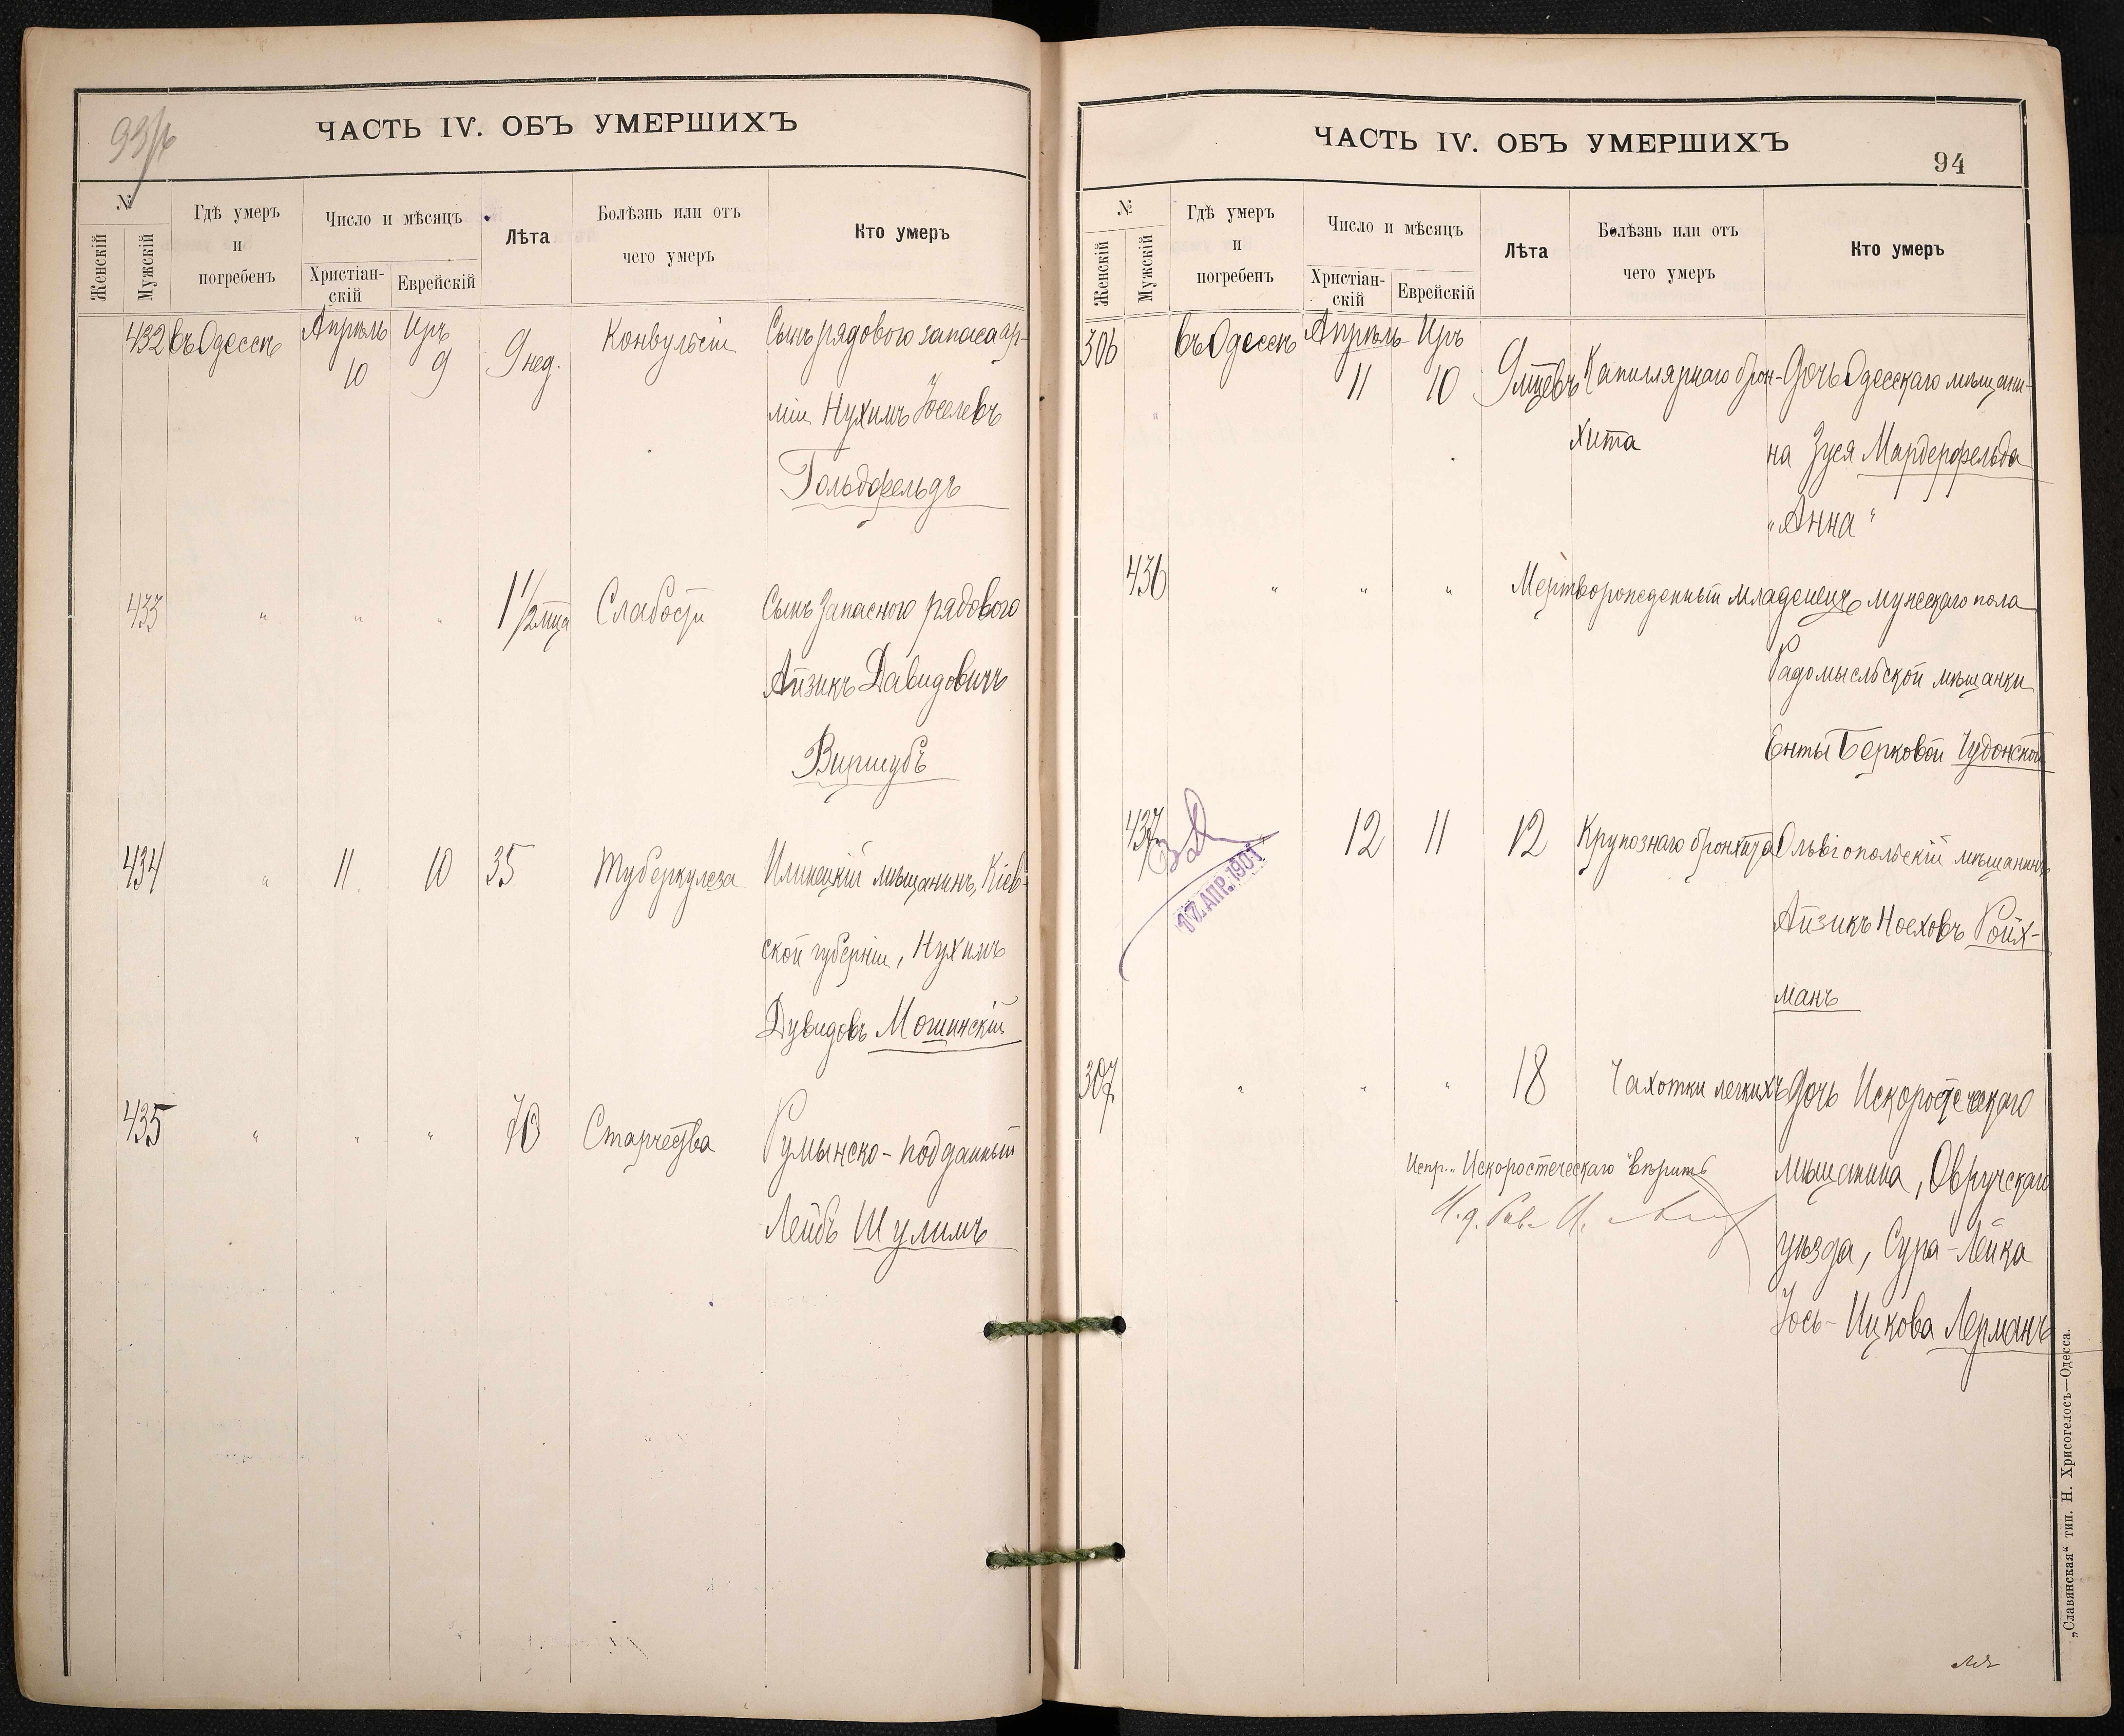 93/4
ЧАСТЬ IV. ОБЪ УМЕРШИХЪ
№
Женскій
Мужскій
Гдѣ умеръ и погребенъ
Число и мѣсяцъ
Христіан-скій
Еврейскій
Лѣта
Болѣзнь или отъ чего умеръ
Кто умеръ
432 въ Одессѣ Апрѣль 10 Иръ 9 9 нед. Конвульсіи Сынъ рядового запаса ар-
міи Нухимъ Іоселевъ
Гольдфельдъ
433 " " " 1 1/2 мца Слабости Сынъ Запасного рядового
Айзикъ Давидовичъ
Виршубъ
434 " 11 10 35 Туберкулеза Илинецкій мѣщанинъ, Кіев-
ской губерніи, Нухимъ
Дувидовъ Мошинскій
435 " " " 70 Старчества Румынско-подданный
Лейбъ Шулимъ
ЧАСТЬ IV. ОБЪ УМЕРШИХЪ
94
№
Женскій
Мужскій
Гдѣ умеръ и погребенъ
Число и мѣсяцъ
Христіан-скій
Еврейскій
Лѣта
Болѣзнь или отъ чего умеръ
Кто умеръ
306 въ Одессѣ Апрѣль 11 Иръ 10 9 мцевъ Капиллярнаго брон- Дочь Одесскаго мѣщани-
хита на Зуся Мардерфельда
„Анна“
436 " " " Мертворожденный младенецъ мужескаго пола
Радомысльской мѣщанки
Енты Берковой Чудонской
437 12 11 12 Крупознаго бронхита Ольвіопольскій мѣщанинъ
12 АПР. 1901
Айзикъ Ноеховъ Ройх-
манъ
307 " " " 18 Чахотки легкихъ Дочь Искоростеческаго
Испр. „Искоростеческаго“ вѣрить
мѣщанина, Овручскаго
И. д. Рав.
уѣзда, Сура-Лейка
Іось-Ицкова Лерманъ
„Славянская“ тип. Н. Хрисогелосъ—Одесса.